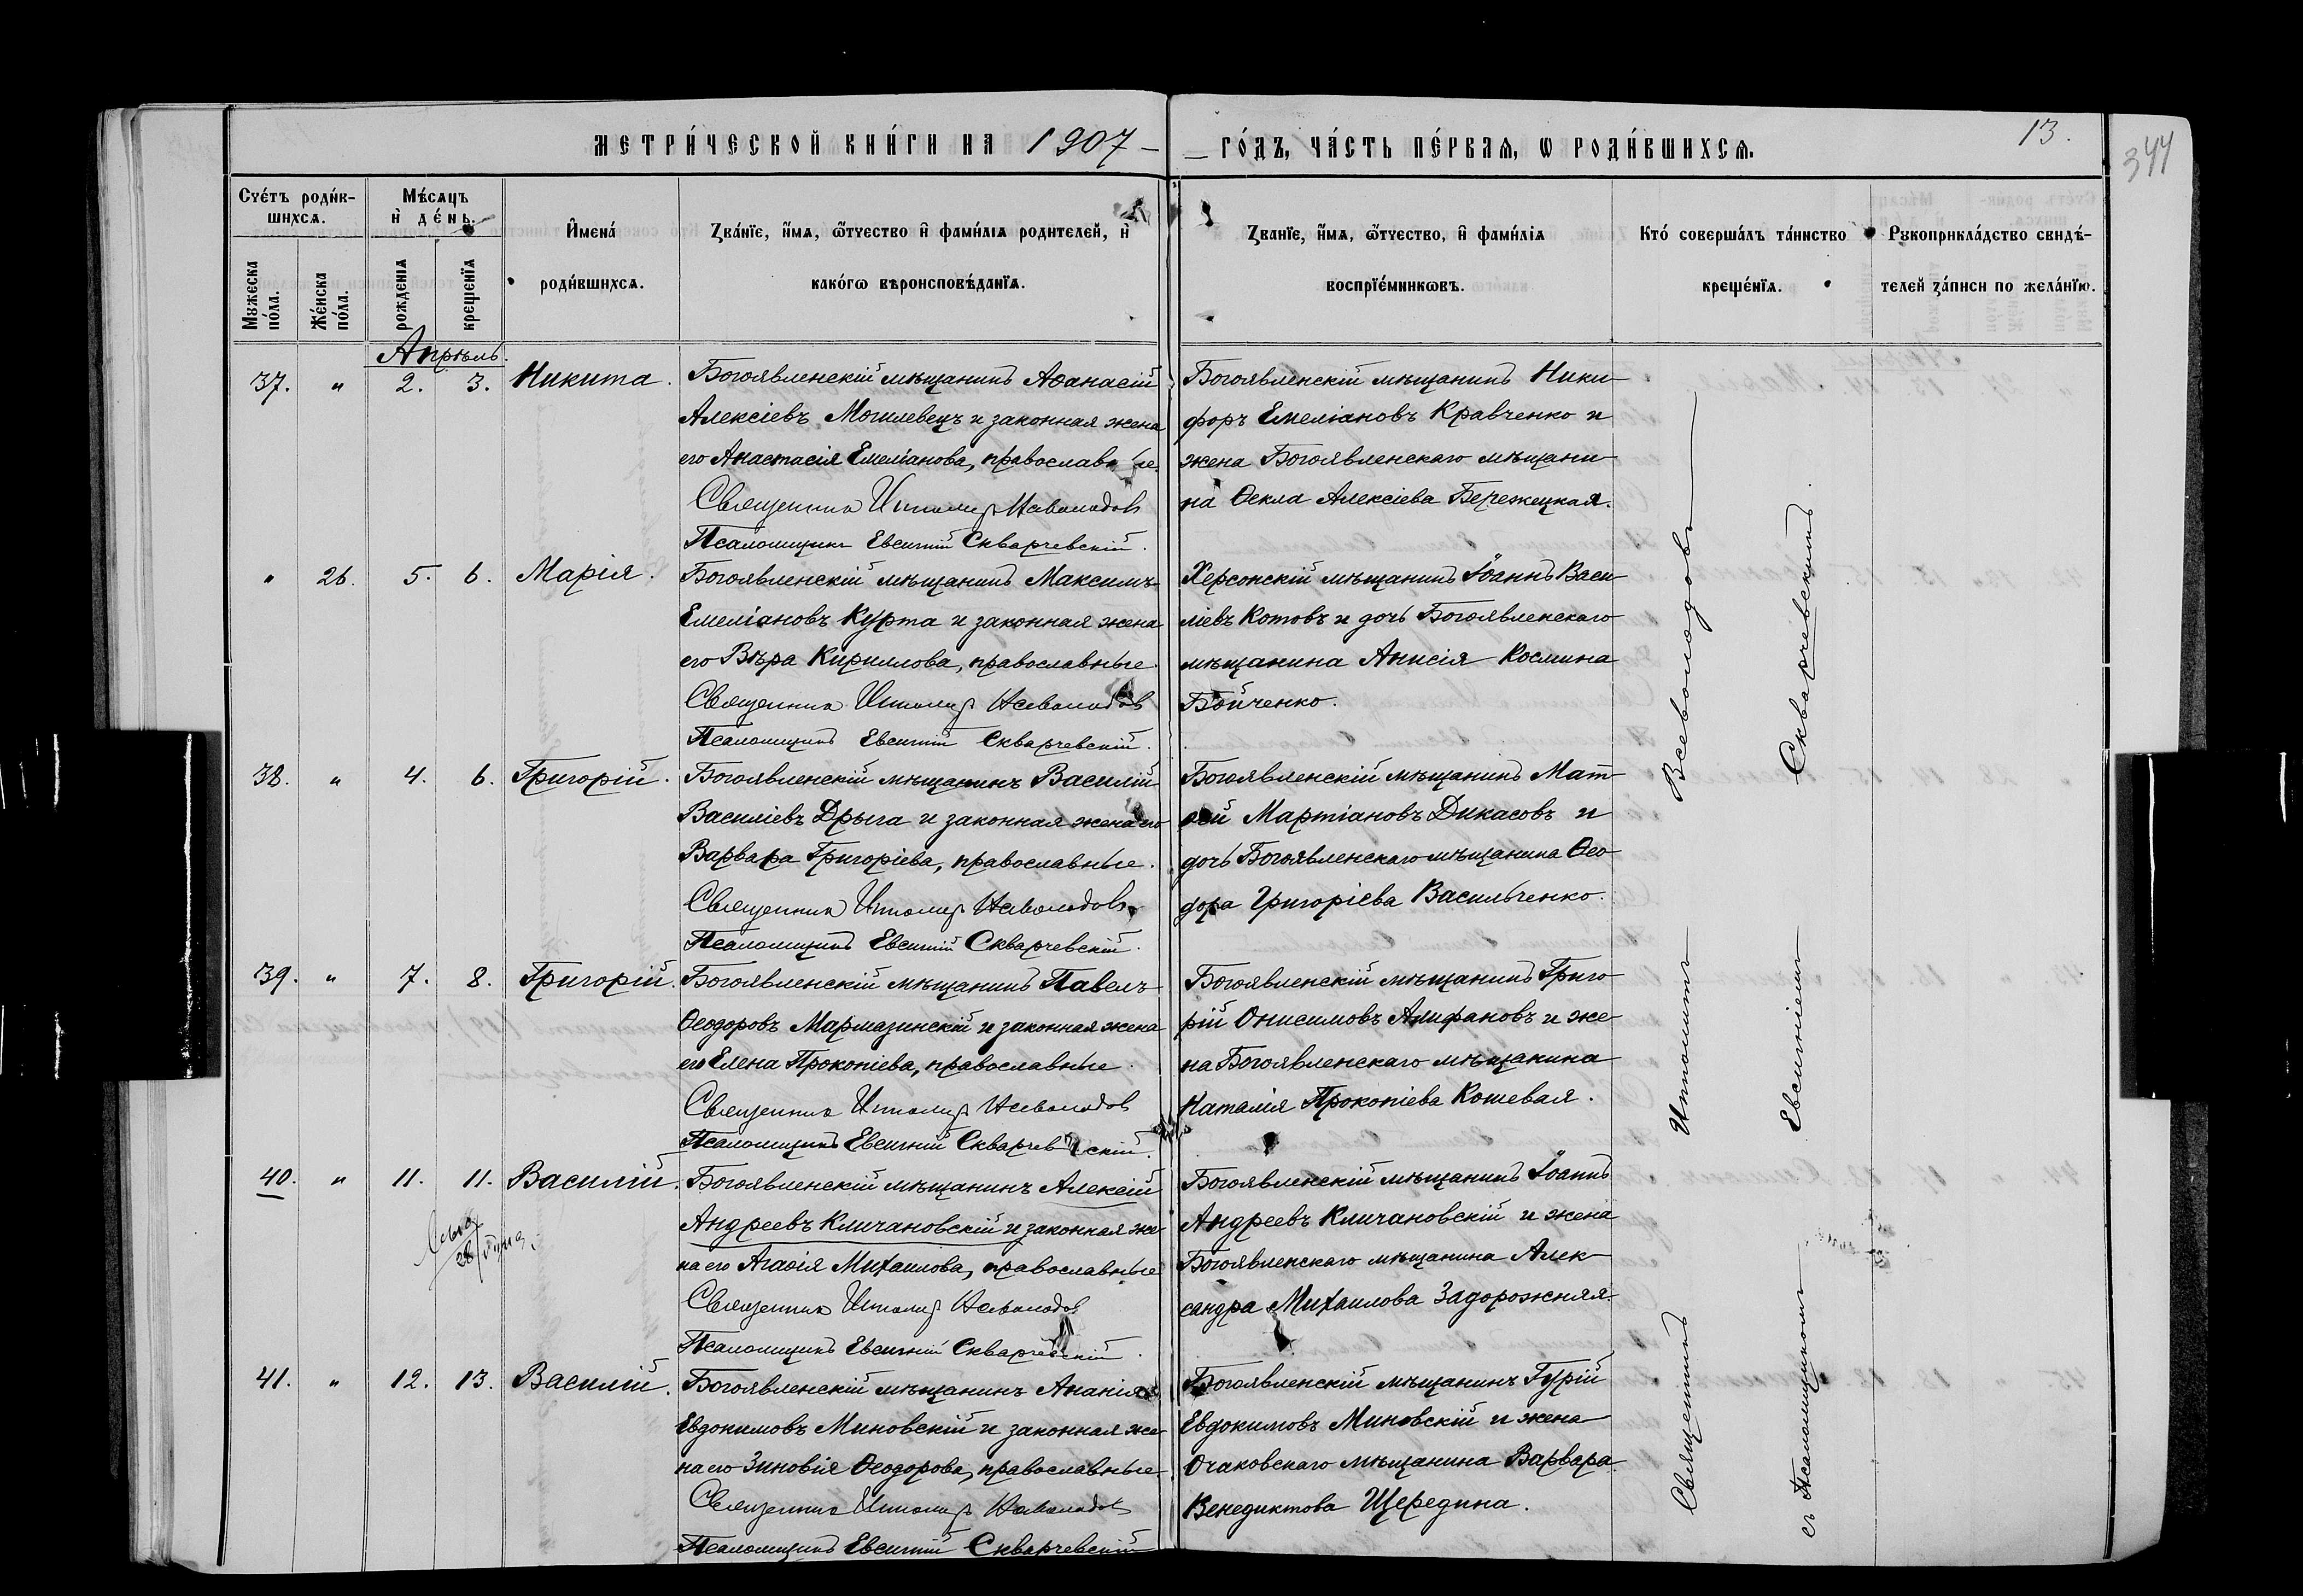 МЕТРИ́ЧЕСКОЙ КНИ́ГИ НА 1907 — ГО́ДЪ, ЧА́СТЬ ПЕ́РВАЯ, Ѡ РОДИ́ВШИХСЯ.
13.
344
Счéтъ роди́в-
шихсѧ.
Мужеска по́ла.
Же́нска по́ла.
Мѣ́сѧцъ
и҆ де́нь.
рожденїѧ
крещенїѧ
И҆мена́
роди́вшихсѧ.
Ꙁва́нїе, и҆́мѧ, ѻ҆́тчество и҆ фами́лїѧ родителей, и҆
како́гѡ вѣроисповѣ́данїѧ.
Ꙁванїе, и҆́мѧ, ѻ҆́тчество, и҆ фами́лїѧ
воспрїе́мникѡвъ.
Кто́ соверша́лъ та́инство
креще́нїѧ.
Рꙋкоприкла́дство свидѣ́-
телей ꙁа́писи по жела́нїю.
Апрѣль.
37. " 2. 3. Никита.
Богоявленскій мѣщанинъ Аѳанасій
Алексіевъ Могилевецъ и законная жена
его Анастасія Емеліанова, православные.
Священникъ Ипполитъ Всеволодовъ
Псаломщикъ Евсигній Скварчевскій.
Богоявленскій мѣщанинъ Ники-
форъ Емеліановъ Кравченко и
жена Богоявленскаго мѣщани-
на Ѳекла Алексіева Бережецкая.
" 26. 5. 6. Марія.
Богоявленскій мѣщанинъ Максимъ
Емеліановъ Курта и законная жена
его Вѣра Кириллова, православные.
Священникъ Ипполитъ Всеволодовъ
Псаломщикъ Евсигній Скварчевскій.
Херсонскій мѣщанинъ Іоаннъ Васи-
ліевъ Котовъ и дочь Богоявленскаго
мѣщанина Анисія Космина
Бойченко.
38. " 4. 6. Григорій.
Богоявленскій мѣщанинъ Василій
Василіевъ Дрыга и законная жена его
Варвара Григоріева, православные.
Священникъ Ипполитъ Всеволодовъ
Псаломщикъ Евсигній Скварчевскій.
Богоявленскій мѣщанинъ Мат-
ѳей Мартіановъ Дикасовъ и
дочь Богоявленскаго мѣщанина Ѳео-
дора Григоріева Васильченко.
39. " 7. 8. Григорій.
Богоявленскій мѣщанинъ Павелъ
Ѳеодоровъ Мармазинскій и законная жена
его Елена Прокопіева, православные.
Священникъ Ипполитъ Всеволодовъ
Псаломщикъ Евсигній Скварчевскій.
Богоявленскій мѣщанинъ Григо-
рій Онисимовъ Алифановъ и же-
на Богоявленскаго мѣщанина
Наталія Прокопіева Кошевая.
40. " 11. 11. Василій.
Богоявленскій мѣщанинъ Алексій
Андреевъ Кличановскій и законная же-
на его Агаѳія Михаилова, православные
Священникъ Ипполитъ Всеволодовъ
Псаломщикъ Евсигній Скварчевскій.
Богоявленскій мѣщанинъ Іоаннъ
Андреевъ Кличановскій и жена
Богоявленскаго мѣщанина Алек-
сандра Михаилова Задорожняя.
41. " 12. 13. Василій.
Богоявленскій мѣщанинъ Ананія
Евдокимовъ Миновскій и законная же-
на его Зиновія Ѳеодорова, православные
Священникъ Ипполитъ Всеволодовъ
Псаломщикъ Евсигній Скварчевскій
Богоявленскій мѣщанинъ Гурій
Евдокимовъ Миновскій и жена
Очаковскаго мѣщанина Варвара
Венедиктова Щередина.
Священникъ Ипполитъ Всеволодовъ
съ Псаломщикомъ Евсигніемъ Скварчевскимъ.